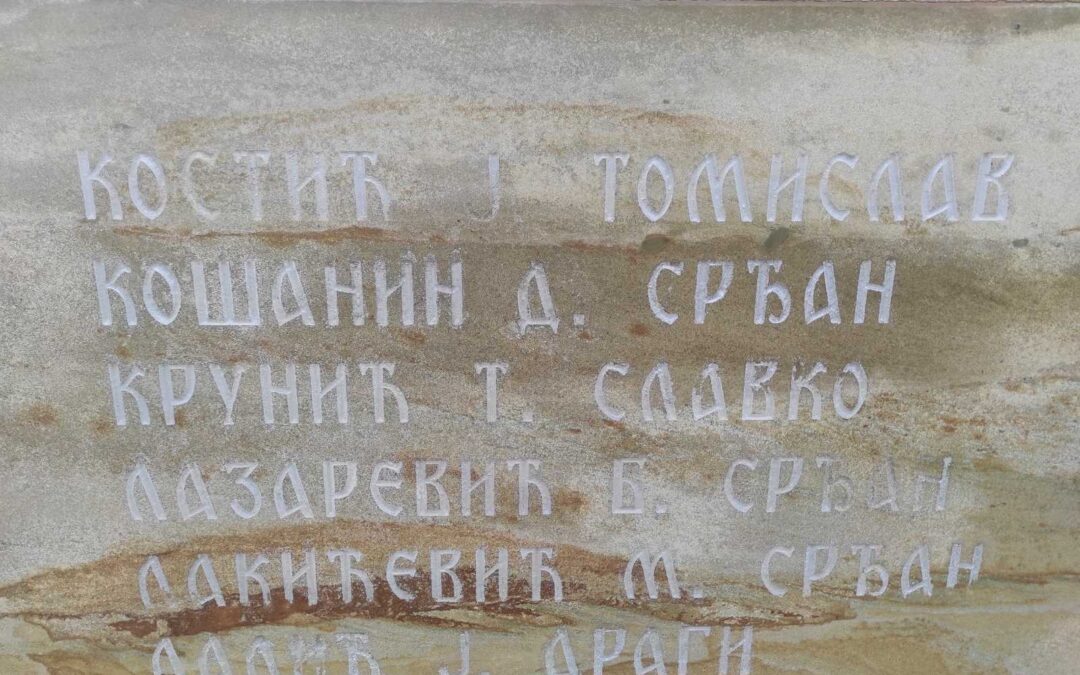 КОСТИЋ Ј. ТОМИСЛАВ
КОШАНИН Д. СРЂАН
КРУНИЋ Т. СЛАВКО
ЛАЗАРЕВИЋ Б. СРЂАН
ЛАКИЋЕВИЋ М. СРЂАН
ЛАЛИЋ Ј. ДРАГИ